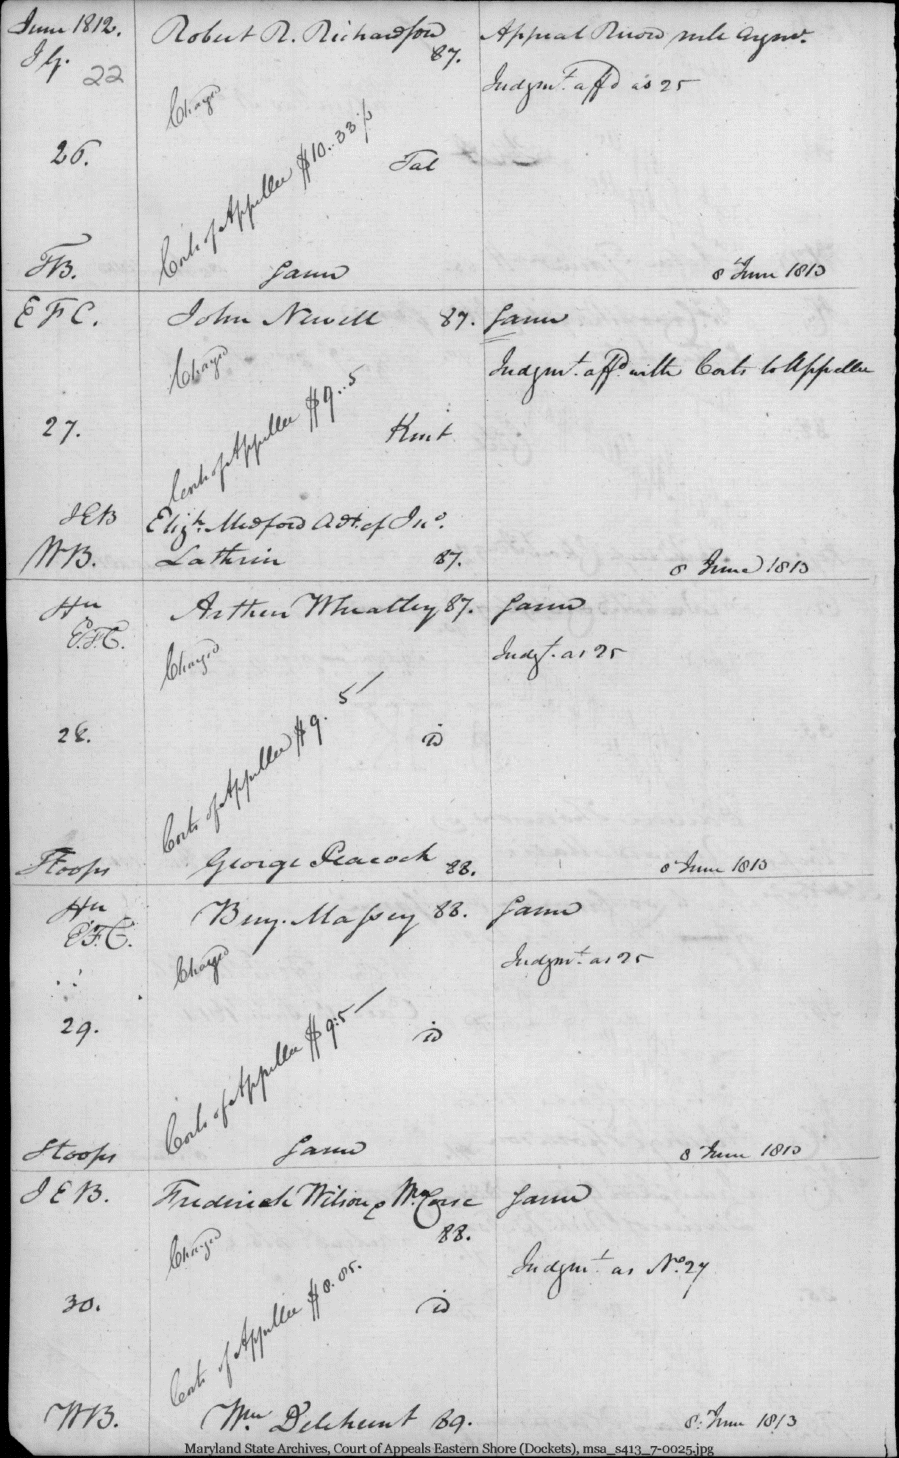 June 1812.
Robert R. Richardson
87.
Appeal Record rule argmt.
22
Judgmt. affd as 25
Charged
26.
Costs of Appellee $10..33⅓
Tal
TB.
Same
8 June 1813
E F C.
John Newell 87.
Same
Charged
Judgmt. affd with Costs to Appellee
27.
Costs of Appellee $9..5
Kent
JEB
Elizh. Medford Adt. of Jno.
WB.
87.
8 June 1813
Hn
Arthur Wheatley 87.
Same
E.F.C.
Charged
Judgt. as 25
28.
Costs of Appellee $9. 5/
id
Stoops
George Peacock 88.
8 June 1813
Hn
Benj. Massey 88.
Same
E.F.C.
Charged
Judgmt. as 25
29.
Costs of Appellee $9:5/
id
Stoops
Same
8 June 1813
J E B.
Frederick Wilson & Wm Corse
88.
Same
Charged
Judgmt. as No. 27
30.
Costs of Appellee $8.05.
id
WB.
Wm Delehunt 89.
8. June 1813
Maryland State Archives, Court of Appeals Eastern Shore (Dockets), msa_s413_7-0025.jpg